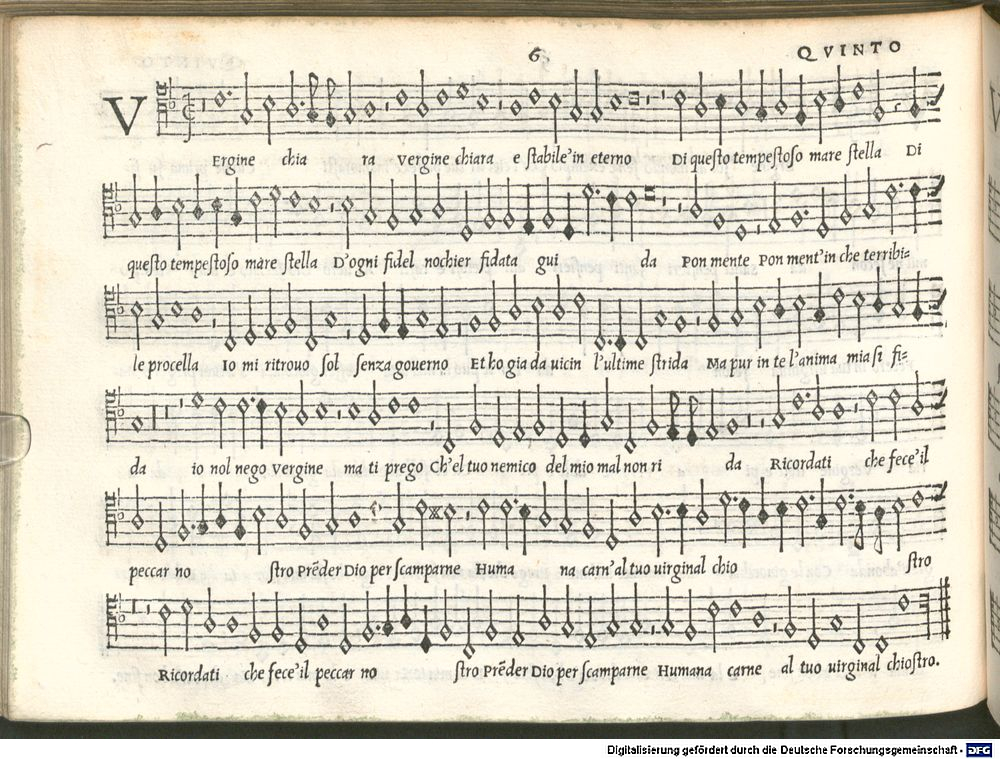 6
QVINTO
VErgine chia ra vergine chiara e stabile'in eterno Di questo tempestoso mare stella Di
questo tempestoso mare stella D'ogni fidel nochier fidata gui da Pon mente Pon ment'in che terribi=
le procella Io mi ritrouo sol senza gouerno Et ho gia da uicin l'ultime strida Ma pur in te l'anima mia si fi=
da io nol nego vergine ma ti prego Ch'el tuo nemico del mio mal non ri da Ricordati che fece'il
peccar no stro Prẽder Dio per scamparne Huma na carn'al tuo uirginal chio stro
Ricordati che fece'il peccar no stro Prẽder Dio per scamparne Humana carne al tuo uirginal chiostro.
Digitalisierung gefördert durch die Deutsche Forschungsgemeinschaft - DFG